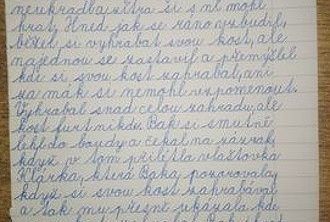 neukradl a zítra si s ní mohl
hrát. Hned jak se ráno vzbudil,
běžel si vyhrabat svou kost, ale
najednou se zastavil a přemýšlel
kde si svou kost zahrabal, ani
za mák si nemohl vzpomenout.
Vyhrabal snad celou zahradu, ale
kost furt nikde. Pak si smutně
lehl do boudy a čekal na zázrak,
když v tom přiletěla vlaštovka
Klárka, která pozorovala,
když si svou kost zahrabával
a tak mu přesně ukázala kde